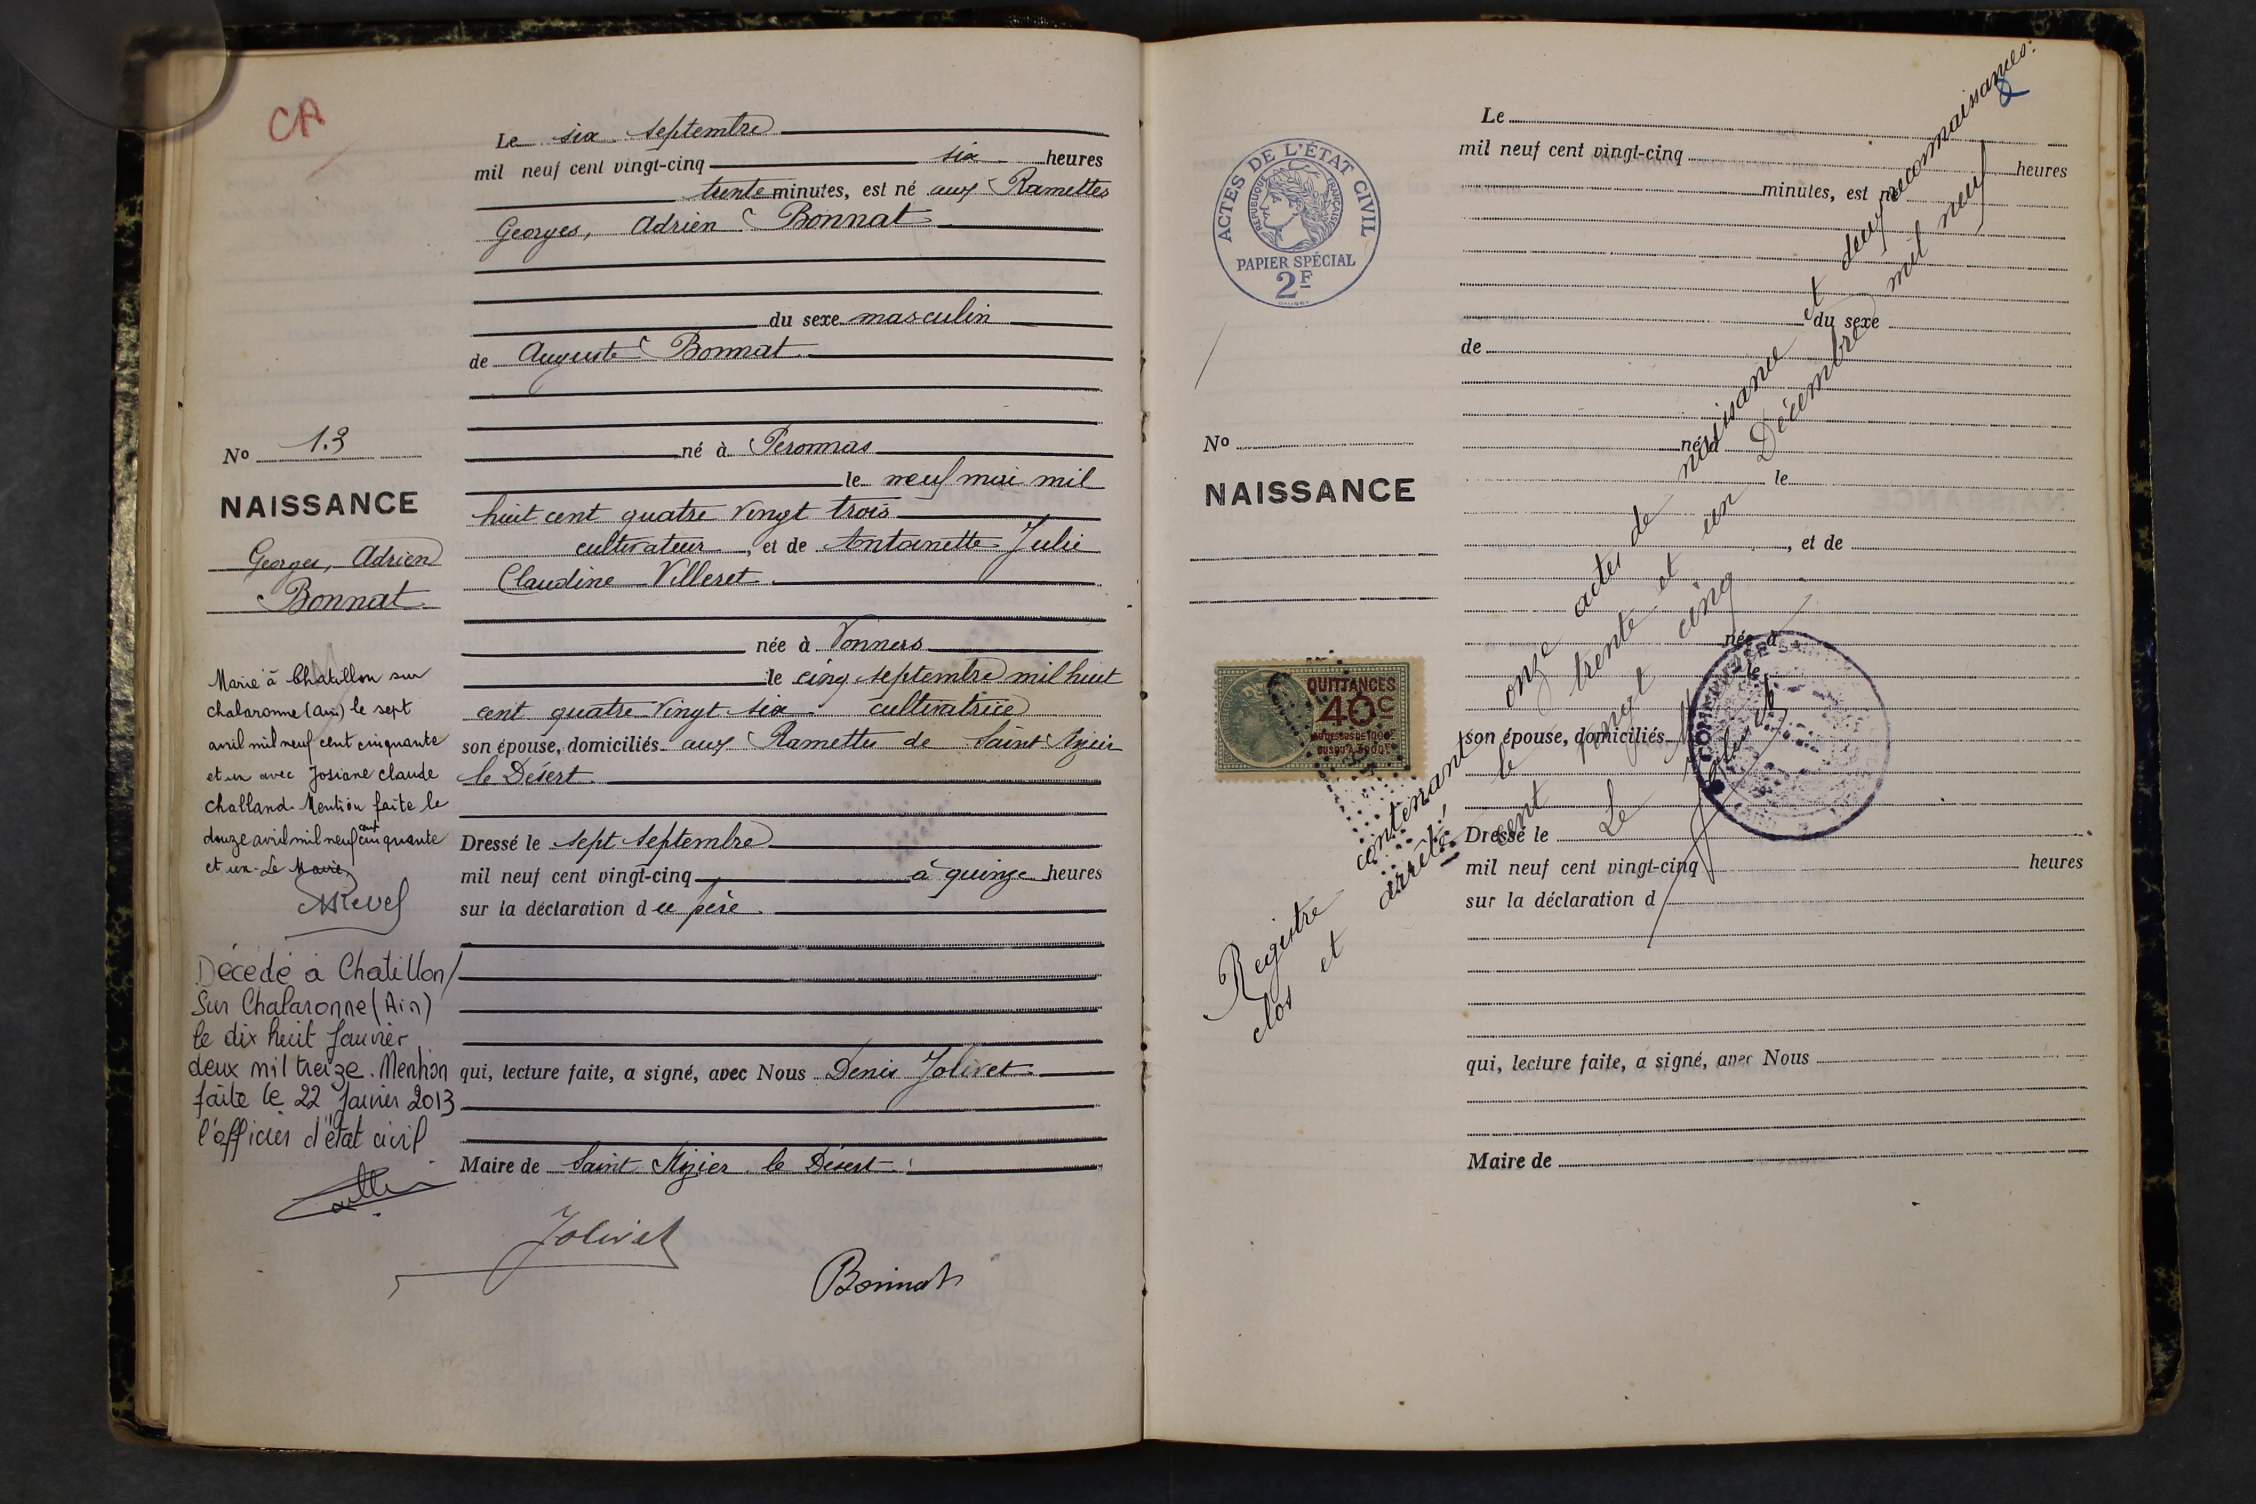 CA
Le six septembre
mil neuf cent vingt-cinq six heures
trente minutes, est né aux Ramettes
Georges, Adrien Bonnat
du sexe masculin
de Auguste Bonnat
né à Peronnas
le neuf mai mil
huit cent quatre vingt trois
cultivateur, et de Antoinette Julie
Claudine Villeret
née à Vonnas
le cinq septembre mil huit
cent quatre vingt six cultivatrice
son épouse, domiciliés aux Ramettes de Saint Nizier
le Désert
Dressé le sept septembre
mil neuf cent vingt-cinq à quinze heures
sur la déclaration du père
qui, lecture faite, a signé, avec Nous Denis Jolivet
Maire de Saint Nizier le Désert
Jolivet
Bonnat
No 13
NAISSANCE
Georges, Adrien
Bonnat
Marié à Chatillon sur
chalaronne (Ain) le sept
avril mil neuf cent cinquante
et un avec Josiane Claude
Challand. Mention faite le
douze avril mil neuf cent cinquante
et un. Le Maire,
Décédé à Chatillon/
Sur Chalaronne (Ain)
le dix huit Janvier
deux mil treize. Mention
faite le 22 Janvier 2013
l'officier d'état civil
ACTES DE L'ÉTAT CIVIL
RÉPUBLIQUE FRANÇAISE
PAPIER SPÉCIAL
2F
Le
mil neuf cent vingt-cinq heures
minutes, est né
du sexe
de
né à
le
, et de
née à
le
son épouse, domiciliés
Dressé le
mil neuf cent vingt-cinq heures
sur la déclaration d
qui, lecture faite, a signé, avec Nous
Maire de
No
NAISSANCE
QUITTANCES
40c
Registre contenant onze actes de naissance et deux reconnaissances.
clos et arrêté le trente et un Décembre mil neuf
cent vingt cinq
Le Maire
Jolivet
COMMUNE DE SAINT